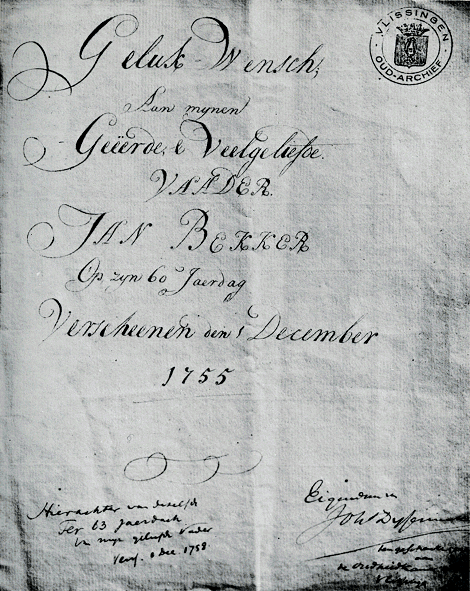 VLISSINGEN
OUD-ARCHIEF
Geluk-Wensch;
Aan mynen
Geëerde, & Veelgeliefde.
VAADER.
JAN BEKKER
Op zyn 60 Jaerdag
Verscheenen den 1 December
1755
Hierachter van deselfde
Ter 63 Jaerdach
Van myn geliefde Vader
1 dec 1758
Eigendom v
Joh
ten geschenke
de oudheidkamer